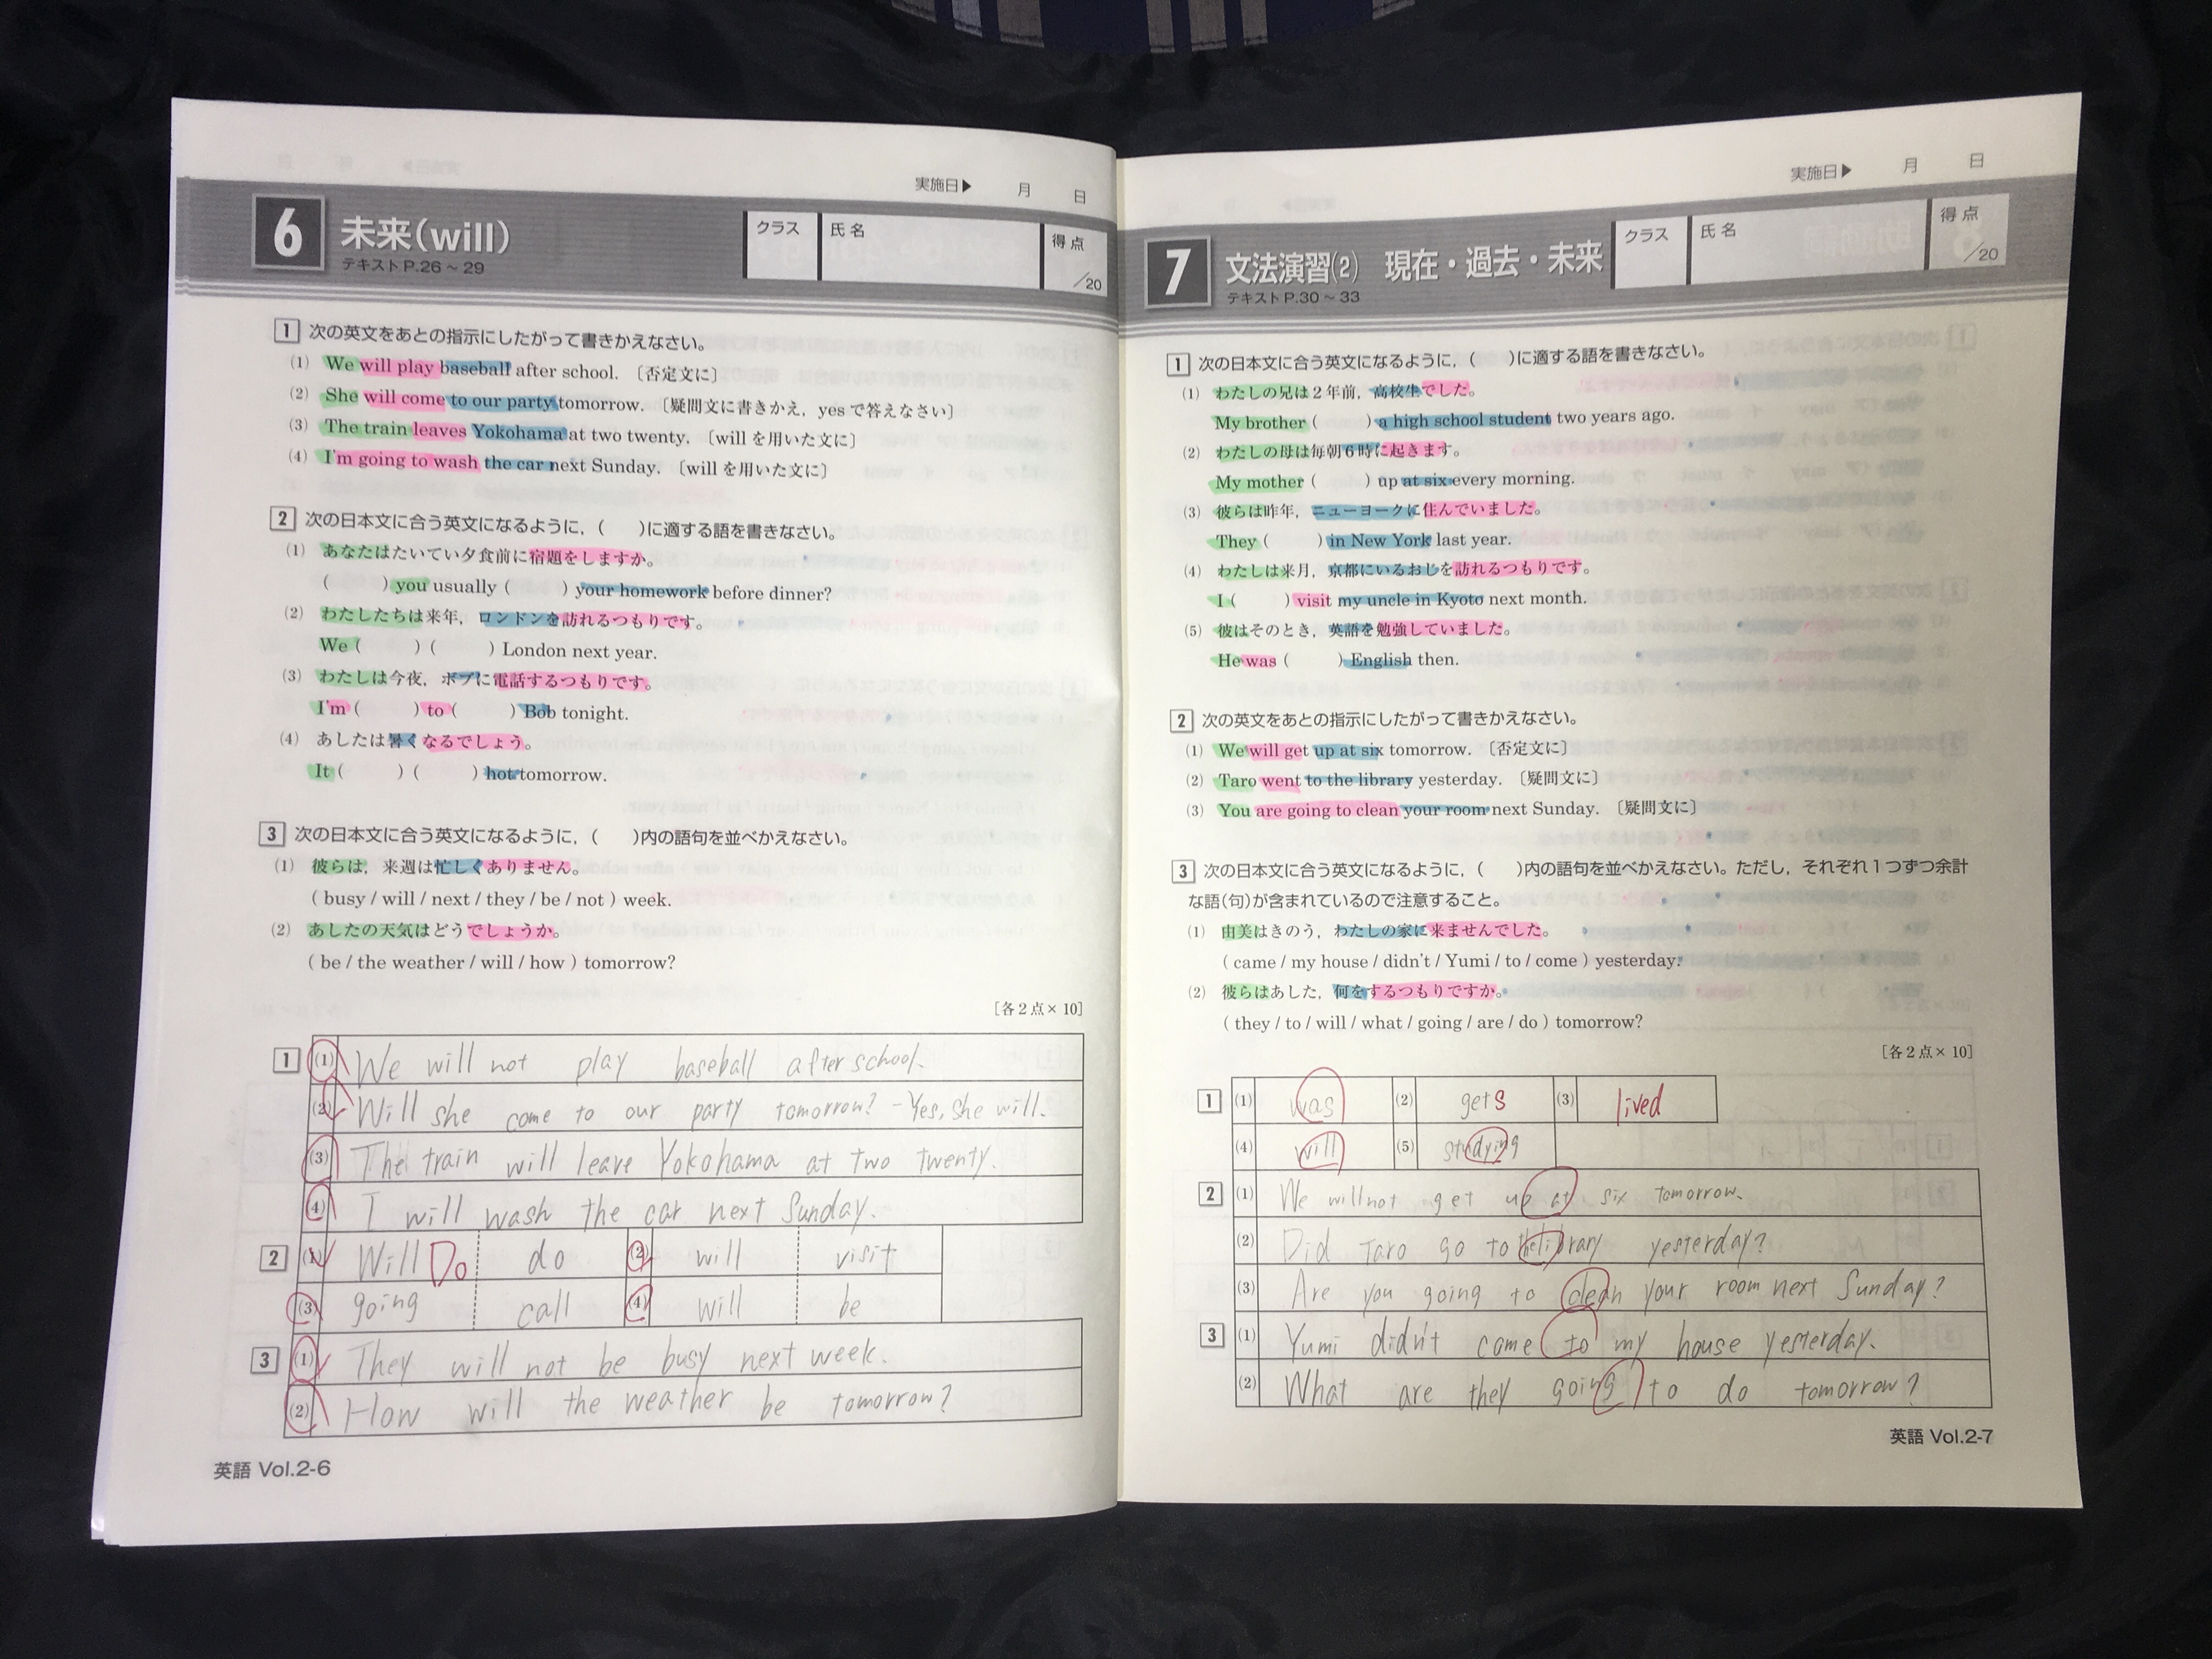 実施日▶ 月 日
6 未来(will)
テキストP.26～29
クラス 氏名 得点 /20
1 次の英文をあとの指示にしたがって書きかえなさい。
(1) We will play baseball after school. 〔否定文に〕
(2) She will come to our party tomorrow. 〔疑問文に書きかえ, yesで答えなさい〕
(3) The train leaves Yokohama at two twenty. 〔willを用いた文に〕
(4) I'm going to wash the car next Sunday. 〔willを用いた文に〕
2 次の日本文に合う英文になるように, ( )に適する語を書きなさい。
(1) あなたはたいてい夕食前に宿題をしますか。
( ) you usually ( ) your homework before dinner?
(2) わたしたちは来年, ロンドンを訪れるつもりです。
We ( ) ( ) London next year.
(3) わたしは今夜, ボブに電話するつもりです。
I'm ( ) to ( ) Bob tonight.
(4) あしたは暑くなるでしょう。
It ( ) ( ) hot tomorrow.
3 次の日本文に合う英文になるように, ( )内の語句を並べかえなさい。
(1) 彼らは, 来週は忙しくありません。
( busy / will / next / they / be / not ) week.
(2) あしたの天気はどうでしょうか。
( be / the weather / will / how ) tomorrow?
[各2点×10]
1 (1) We will not play baseball after school.
(2) Will she come to our party tomorrow? - Yes, she will.
(3) The train will leave Yokohama at two twenty.
(4) I will wash the car next Sunday.
2 (1) Will Do do (2) will visit
(3) going call (4) will be
3 (1) They will not be busy next week.
(2) How will the weather be tomorrow?
英語 Vol.2-6
実施日▶ 月 日
7 文法演習(2) 現在・過去・未来
テキストP.30～33
クラス 氏名 得点 /20
1 次の日本文に合う英文になるように, ( )に適する語を書きなさい。
(1) わたしの兄は2年前, 高校生でした。
My brother ( ) a high school student two years ago.
(2) わたしの母は毎朝6時に起きます。
My mother ( ) up at six every morning.
(3) 彼らは昨年, ニューヨークに住んでいました。
They ( ) in New York last year.
(4) わたしは来月, 京都にいるおじを訪れるつもりです。
I ( ) visit my uncle in Kyoto next month.
(5) 彼はそのとき, 英語を勉強していました。
He was ( ) English then.
2 次の英文をあとの指示にしたがって書きかえなさい。
(1) We will get up at six tomorrow. 〔否定文に〕
(2) Taro went to the library yesterday. 〔疑問文に〕
(3) You are going to clean your room next Sunday. 〔疑問文に〕
3 次の日本文に合う英文になるように, ( )内の語句を並べかえなさい。ただし, それぞれ1つずつ余計
な語(句)が含まれているので注意すること。
(1) 由美はきのう, わたしの家に来ませんでした。
( came / my house / didn't / Yumi / to / come ) yesterday.
(2) 彼らはあした, 何をするつもりですか。
( they / to / will / what / going / are / do ) tomorrow?
[各2点×10]
1 (1) was (2) gets (3) lived
(4) will (5) studying
2 (1) We will not get up at six tomorrow.
(2) Did Taro go to the library yesterday?
(3) Are you going to clean your room next Sunday?
3 (1) Yumi didn't come to my house yesterday.
(2) What are they going to do tomorrow?
英語 Vol.2-7